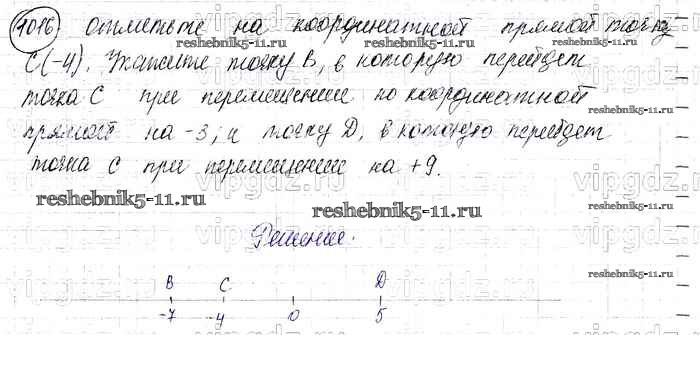 1016 отметьте на координатной прямой точку
С(-4). Укажите точку В, в которую перейдет
точка С при перемещении по координатной
прямой на -3, и точку D, в которую перейдет
точка С при перемещении на +9.
reshebnik5-11.ru
reshebnik5-11.ru
reshebnik5-11.ru
reshebnik5-11.ru
reshebnik5-11.ru
reshebnik5-11.ru
vipgdz.ru
vipgdz.ru
vipgdz.ru
Решение.
В С D
-7 -4 0 5